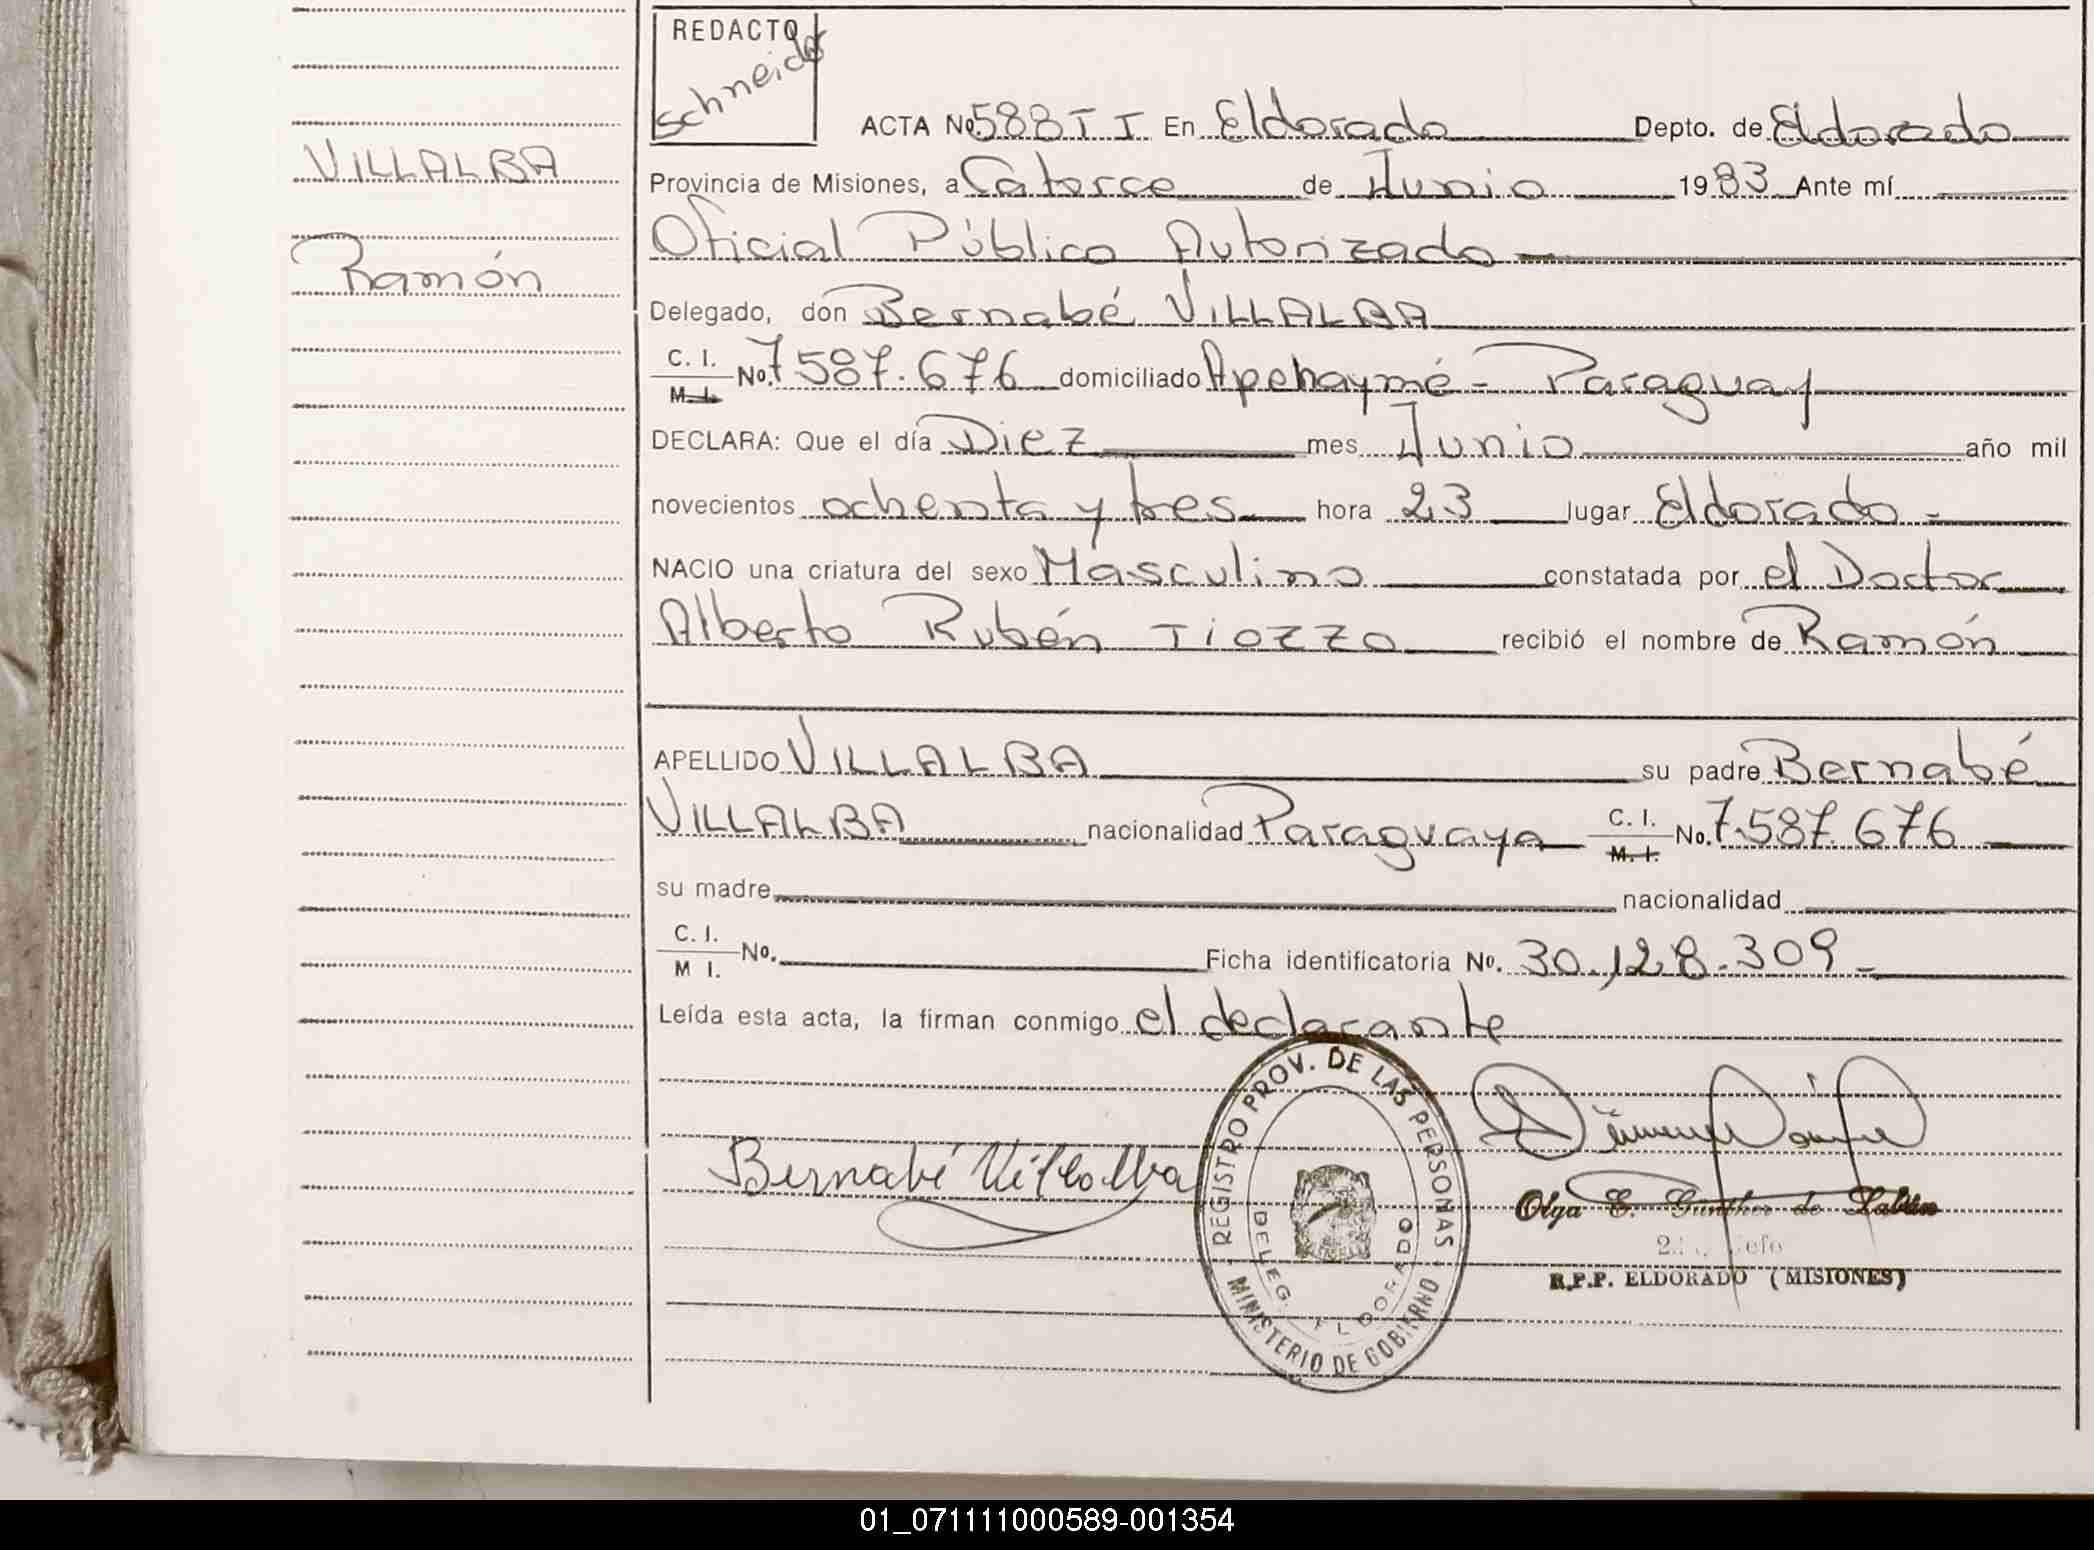 REDACTO
Schneider
ACTA No 588 T I En Eldorado Depto. de Eldorado
VILLALBA
Provincia de Misiones, a Catorce de Junio 1983 Ante mí
Oficial Público Autorizado
Ramón
Delegado, don Bernabé VILLALBA
C. I. M. I. No. 7587.676 domiciliado Apehaymé - Paraguay
DECLARA: Que el día Diez mes Junio año mil
novecientos ochenta y tres hora 23 lugar Eldorado -
NACIO una criatura del sexo Masculino constatada por el Doctor
Alberto Rubén Tiozzo recibió el nombre de Ramón
APELLIDO VILLALBA su padre Bernabé
VILLALBA nacionalidad Paraguaya C. I. M. I. No. 7.587.676
su madre nacionalidad
C. I. M I. No. Ficha identificatoria No. 30.128.309 -
Leída esta acta, la firman conmigo el declarante
REGISTRO PROV. DE LAS PERSONAS
DELEG. ELDORADO
MINISTERIO DE GOBIERNO
Bernabé Villalba
Olga E. Gunther de
R.P.P. ELDORADO (MISIONES)
01_071111000589-001354